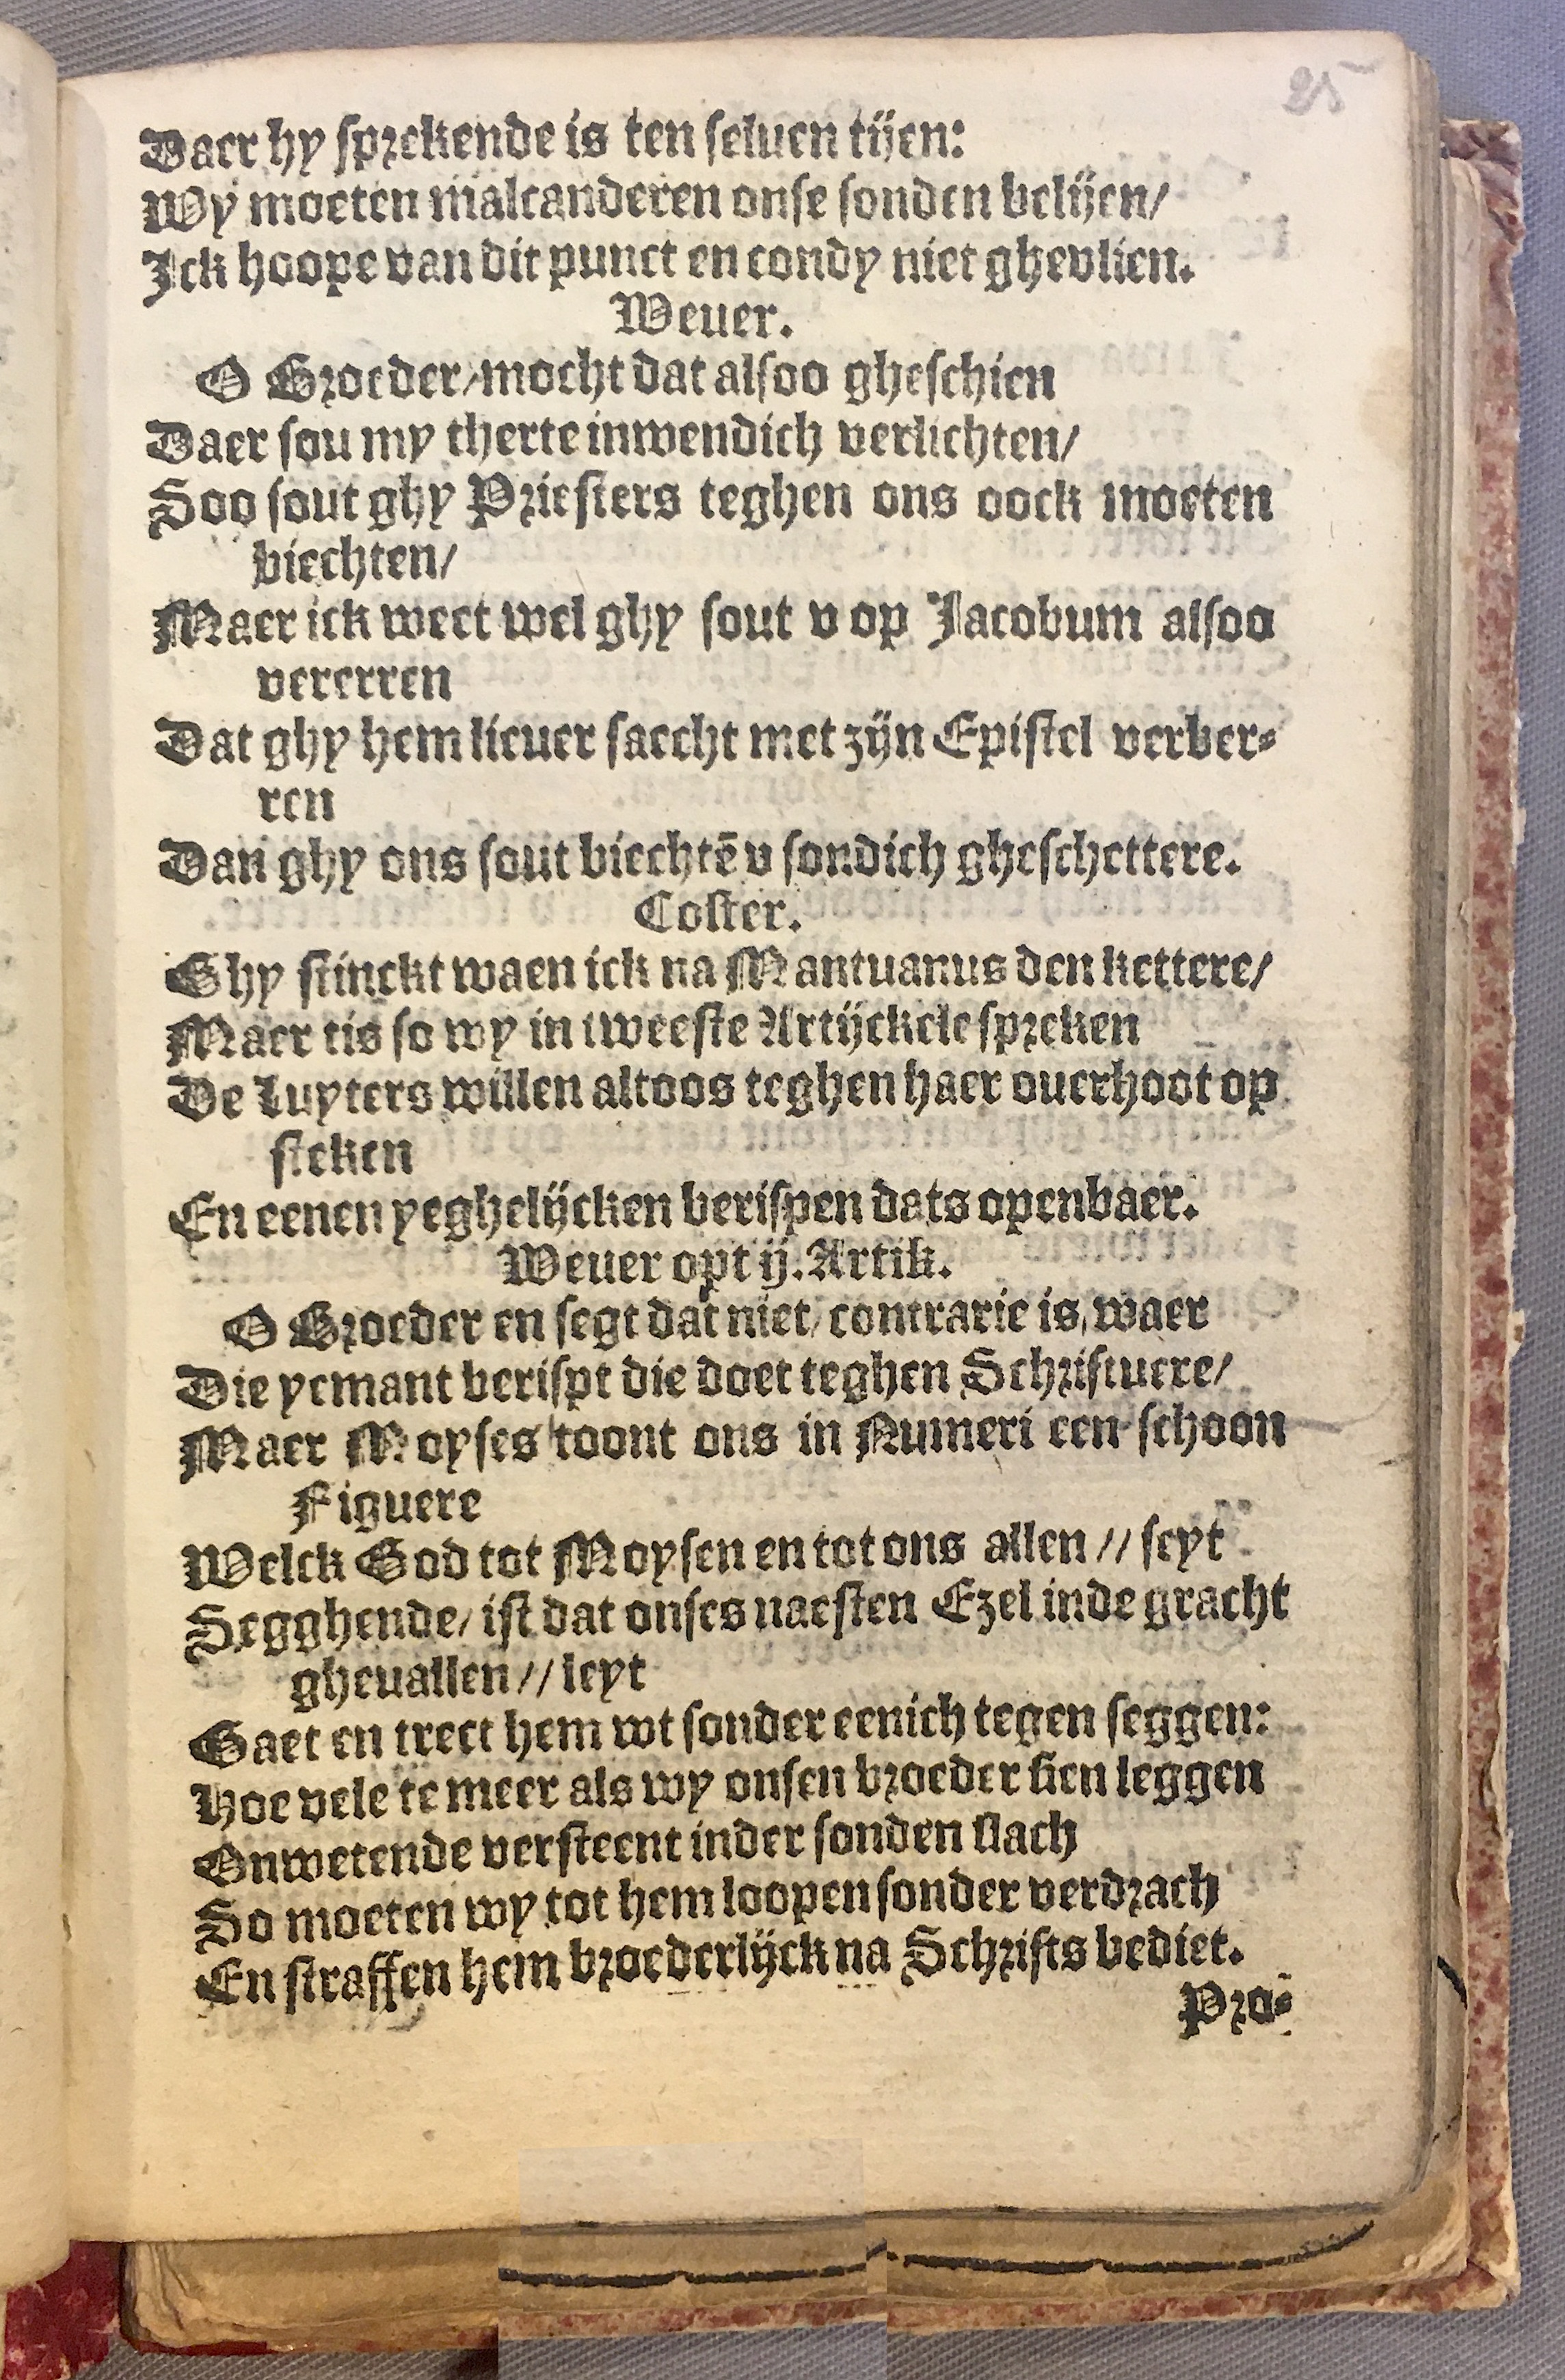 25
Daer hy sprekende is ten seluen tijen:
Wy moeten malcanderen onse sonden belijen/
Ick hoope van dit punct en condy niet ghevlien.
Weuer.
O Broeder/mocht dat alsoo gheschien
Daer sou my therte inwendich verlichten/
Soo sout ghy Priesters teghen ons oock moeten
biechten/
Maer ick weet wel ghy sout v op Jacobum alsoo
vererren
Dat ghy hem lieuer saecht met zijn Epistel verber-
ren
Dan ghy ons sout biechtē v sondich gheschettere.
Coster.
Ghy stinckt waen ick na Mantuanus den kettere/
Maer tis so wy in tweeste Artijckele spreken
De Luyters willen altoos teghen haer ouerhoot op
steken
En eenen yeghelijcken berispen dats openbaer.
Weuer opt ij. Artik.
O Broeder en segt dat niet/contrarie is waer
Die yemant berispt die doet teghen Schriftuere/
Maer Moyses toont ons in Numeri een schoon
Figuere
Welck God tot Moysen en tot ons allen // seyt
Segghende/ ist dat onses naesten Ezel inde gracht
gheuallen // leyt
Gaet en trect hem wt sonder eenich tegen seggen:
Hoe vele te meer als wy onsen broeder sien leggen
Onwetende versteent inder sonden slach
So moeten wy tot hem loopen sonder verdrach
En straffen hem broederlijck na Schrifts bediet.
Pro-